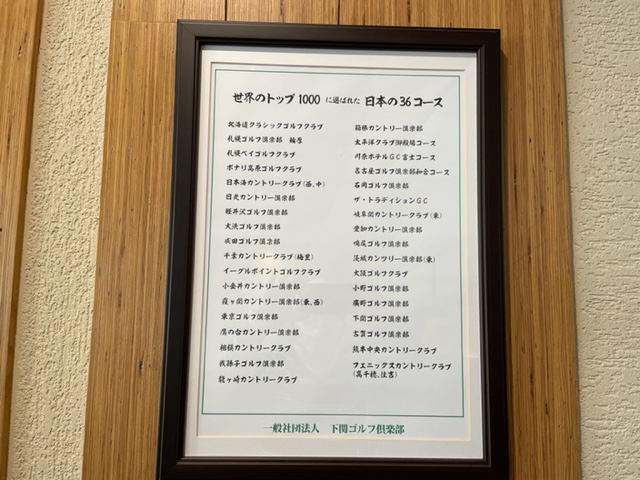 世界のトップ1000に選ばれた 日本の36コース
北海道クラシックゴルフクラブ
札幌ゴルフ倶楽部 輪厚
札幌ベイゴルフクラブ
ボナリ高原ゴルフクラブ
日本海カントリークラブ(西、中)
日光カントリー倶楽部
軽井沢ゴルフ倶楽部
大洗ゴルフ倶楽部
成田ゴルフ倶楽部
千葉カントリークラブ(梅里)
イーグルポイントゴルフクラブ
小金井カントリー倶楽部
霞ヶ関カントリー倶楽部(東、西)
東京ゴルフ倶楽部
鷹の台カントリー倶楽部
相模カントリークラブ
我孫子ゴルフ倶楽部
龍ヶ崎カントリークラブ
箱根カントリー倶楽部
太平洋クラブ御殿場コース
川奈ホテルGC富士コース
名古屋ゴルフ倶楽部和合コース
石岡ゴルフ倶楽部
ザ・トラディションGC
岐阜関カントリークラブ(東)
愛知カントリー倶楽部
鳴尾ゴルフ倶楽部
茨城カンツリー倶楽部(東)
大阪ゴルフクラブ
小野ゴルフ倶楽部
廣野ゴルフ倶楽部
下関ゴルフ倶楽部
古賀ゴルフ倶楽部
熊本中央カントリークラブ
フェニックスカントリークラブ
(高千穂、住吉)
一般社団法人 下関ゴルフ倶楽部